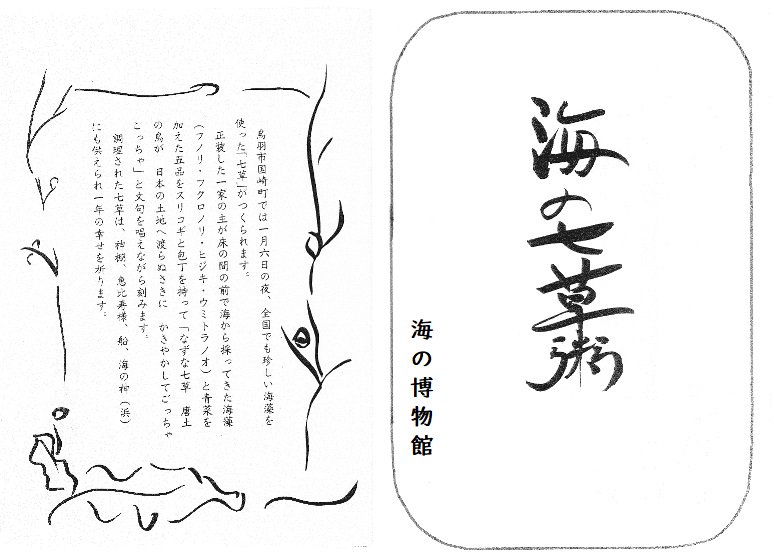 海の七草粥
海の博物館
鳥羽市国崎町では一月六日の夜、全国でも珍しい海藻を
使った「七草」がつくられます。
正装した一家の主が床の間の前で海から採ってきた海藻
(フノリ・フクロノリ・ヒジキ・ウミトラノオ)と青菜を
加えた五品をスリコギと包丁を持って「なずな七草 唐土
の鳥が 日本の土地へ渡らぬさきに かきやかしてごっちゃ
こっちゃ」と文句を唱えながら刻みます。
調理された七草は、神棚、恵比寿様、船、海の神(浜)
にも供えられ一年の幸せを祈ります。